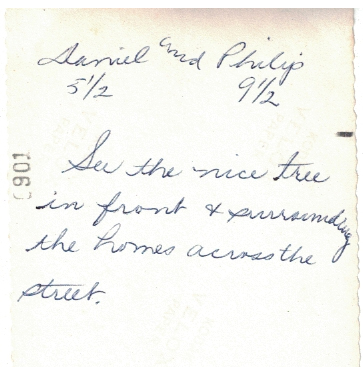 Daniel and Philip
5 1/2 9 1/2
See the nice tree
in front & surrounding
the homes across the
street.